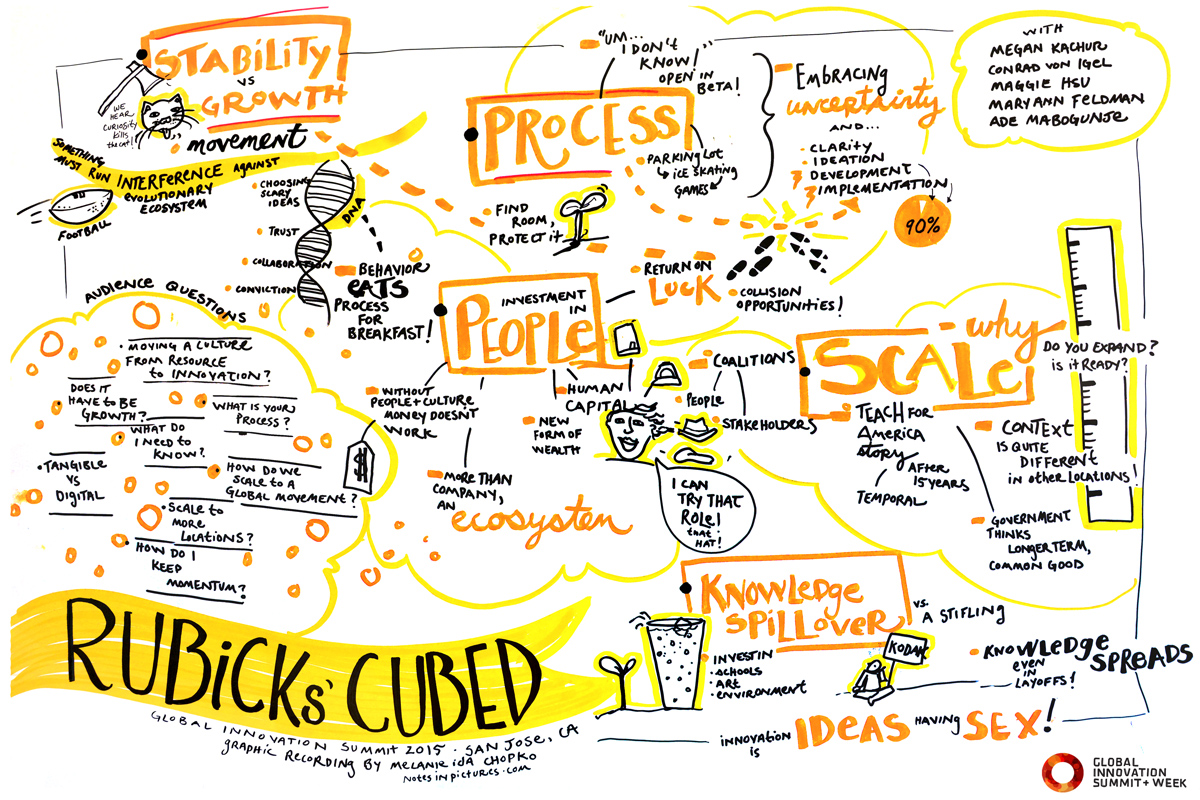 STABILITY
VS
GROWTH
WE
HEAR
CURIOSITY
KILLS
THE CAT!
movement
SOMETHING
MUST RUN INTERFERENCE AGAINST
EVOLUTIONARY
ECOSYSTEM
FOOTBALL
CHOOSING
SCARY
IDEAS
TRUST
COLLABORATION
CONVICTION
DNA
BEHAVIOR
EATS
PROCESS
FOR
BREAKFAST!
"UM...
I DON'T
KNOW!"
OPEN IN
BETA!
PROCESS
PARKING LOT
ICE SKATING
GAMES
FIND
ROOM,
PROTECT IT
EMBRACING
uncertainty
AND...
CLARITY
IDEATION
DEVELOPMENT
IMPLEMENTATION
90%
WITH
MEGAN KACHUR
CONRAD VON IGEL
MAGGIE HSU
MARYANN FELDMAN
ADE MABOGUNJE
RETURN ON
LUCK
COLLISION
OPPORTUNITIES!
INVESTMENT
IN
PEOPLE
WITHOUT
PEOPLE + CULTURE
MONEY DOESN'T
WORK
$
MORE THAN
COMPANY,
AN
ecosystem
HUMAN
CAPITAL
NEW
FORM OF
WEALTH
COALITIONS
PEOPLE
STAKEHOLDERS
I CAN
TRY THAT
ROLE!
that
HAT!
- why
SCALE
DO YOU EXPAND?
IS IT READY?
TEACH FOR
AMERICA
STORY
AFTER
15 YEARS
TEMPORAL
CONTEXT
IS QUITE
DIFFERENT
IN OTHER LOCATIONS!
GOVERNMENT
THINKS
LONGER TERM,
COMMON GOOD
AUDIENCE QUESTIONS
MOVING A CULTURE
FROM RESOURCE
to INNOVATION?
DOES IT
HAVE TO BE
GROWTH?
WHAT IS YOUR
PROCESS?
WHAT DO
I NEED TO
KNOW?
TANGIBLE
VS
DIGITAL
HOW DO WE
SCALE TO A
GLOBAL MOVEMENT?
SCALE TO
MORE
LOCATIONS?
HOW DO I
KEEP
MOMENTUM?
KNOWLEDGE
SPILLOVER
VS.
A STIFLING
KODAK
INVEST IN
SCHOOLS
ART
ENVIRONMENT
KNOWLEDGE
SPREADS
EVEN
IN
LAYOFFS!
INNOVATION
IS
IDEAS HAVING SEX!
RUBICKS' CUBED
GLOBAL INNOVATION SUMMIT 2015 · SAN JOSE, CA
GRAPHIC RECORDING BY MELANIE IDA CHOPKO
NOTESINPICTURES.COM
GLOBAL
INNOVATION
SUMMIT + WEEK